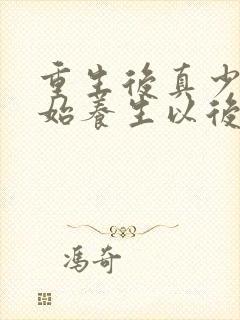 重生後真少
始養生以後
馮奇